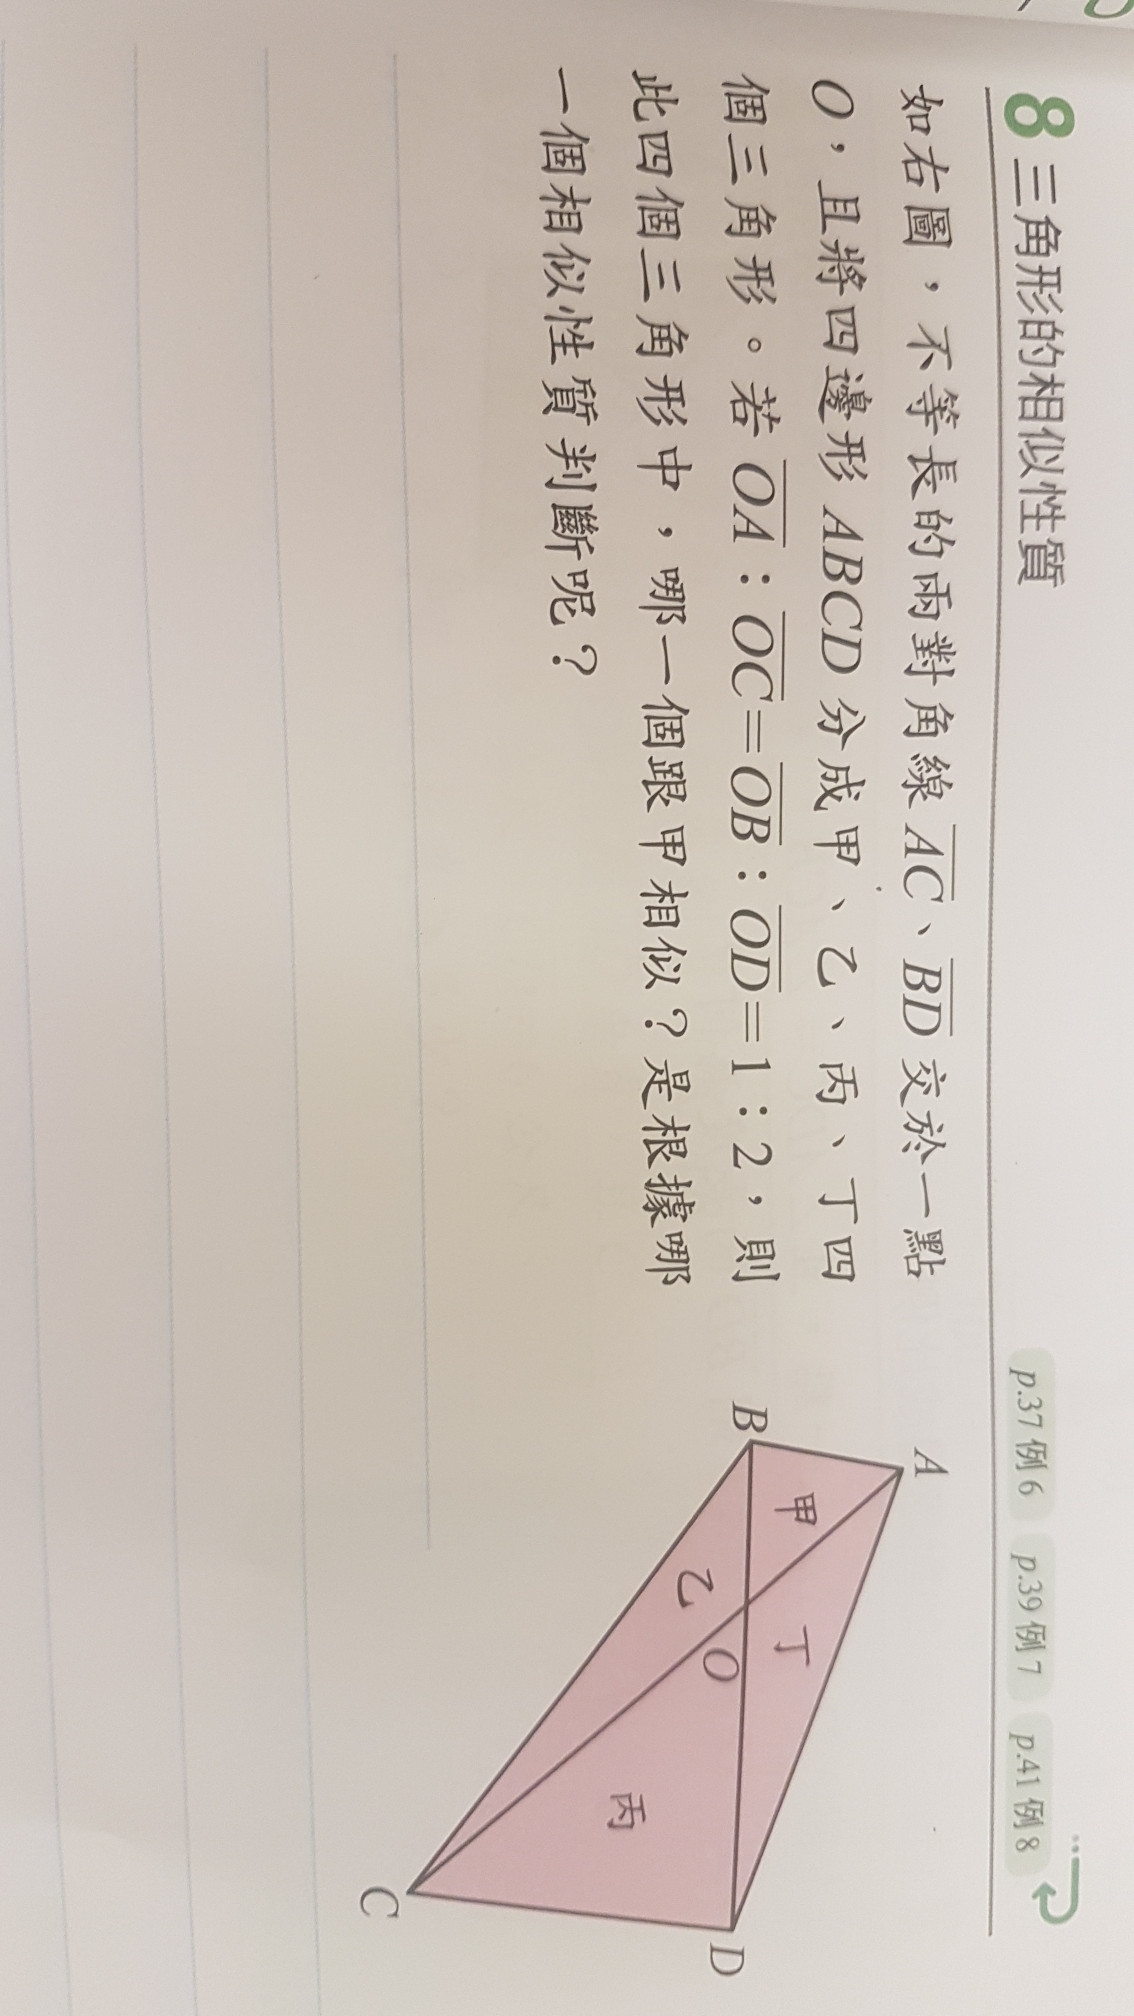 8 三角形的相似性質
p.37 例 6 p.39 例 7 p.41 例 8
如右圖，不等長的兩對角線 AC、BD 交於一點
O，且將四邊形 ABCD 分成甲、乙、丙、丁四
個三角形。若 OA：OC=OB：OD=1：2，則
此四個三角形中，哪一個跟甲相似？是根據哪
一個相似性質判斷呢？
A
B
甲
丁
乙
O
丙
D
C